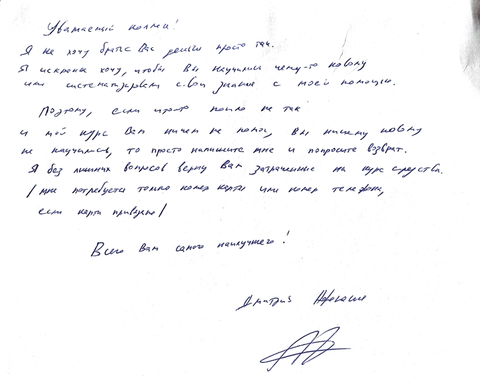 Уважаемый коллега!
Я не хочу брать с Вас деньги просто так.
Я искренне хочу, чтобы Вы научились чему-то новому
или систематизировали свои знания с моей помощью.
Поэтому, если что-то пошло не так
и мой курс Вам ничем не помог, Вы ничему новому
не научились, то просто напишите мне и попросите возврат.
Я без лишних вопросов верну Вам затраченные на курс средства.
/мне потребуется только номер карты или номер телефона,
если карта привязана/
Всего Вам самого наилучшего!
Дмитрий